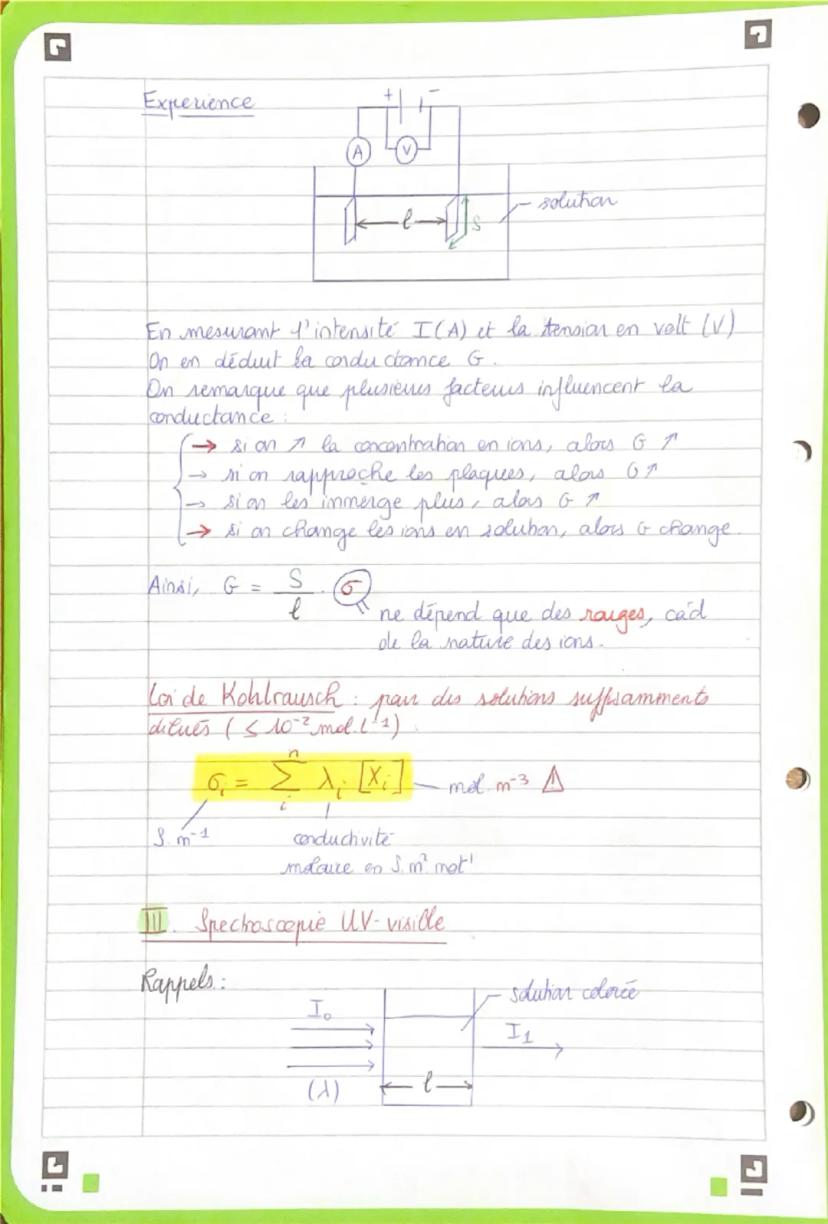 Experience
+ -
A V
l S solution
En mesurant l'intensité I(A) et la tension en volt (V)
On en déduit la conductance G.
On remarque que plusieurs facteurs influencent la
conductance :
→ si on ↗ la concentration en ions, alors G ↗
→ si on rapproche les plaques, alors G ↗
→ si on les immerge plus, alors G ↗
→ si on change les ions en solution, alors G change.
Ainsi, G = S/l . σ
ne dépend que des rouges, càd
de la nature des ions.
Loi de Kohlrausch : pour des solutions suffisamments
dilués (≤ 10⁻² mol.l⁻¹).
σᵢ = Σⁿᵢ λᵢ [Xᵢ] mol.m⁻³ ⚠
S.m⁻¹ conductivité
molaire en S.m².mol⁻¹
III. Spectroscopie UV-visible
Rappels :
solution colorée
I₀
I₁
(λ) l